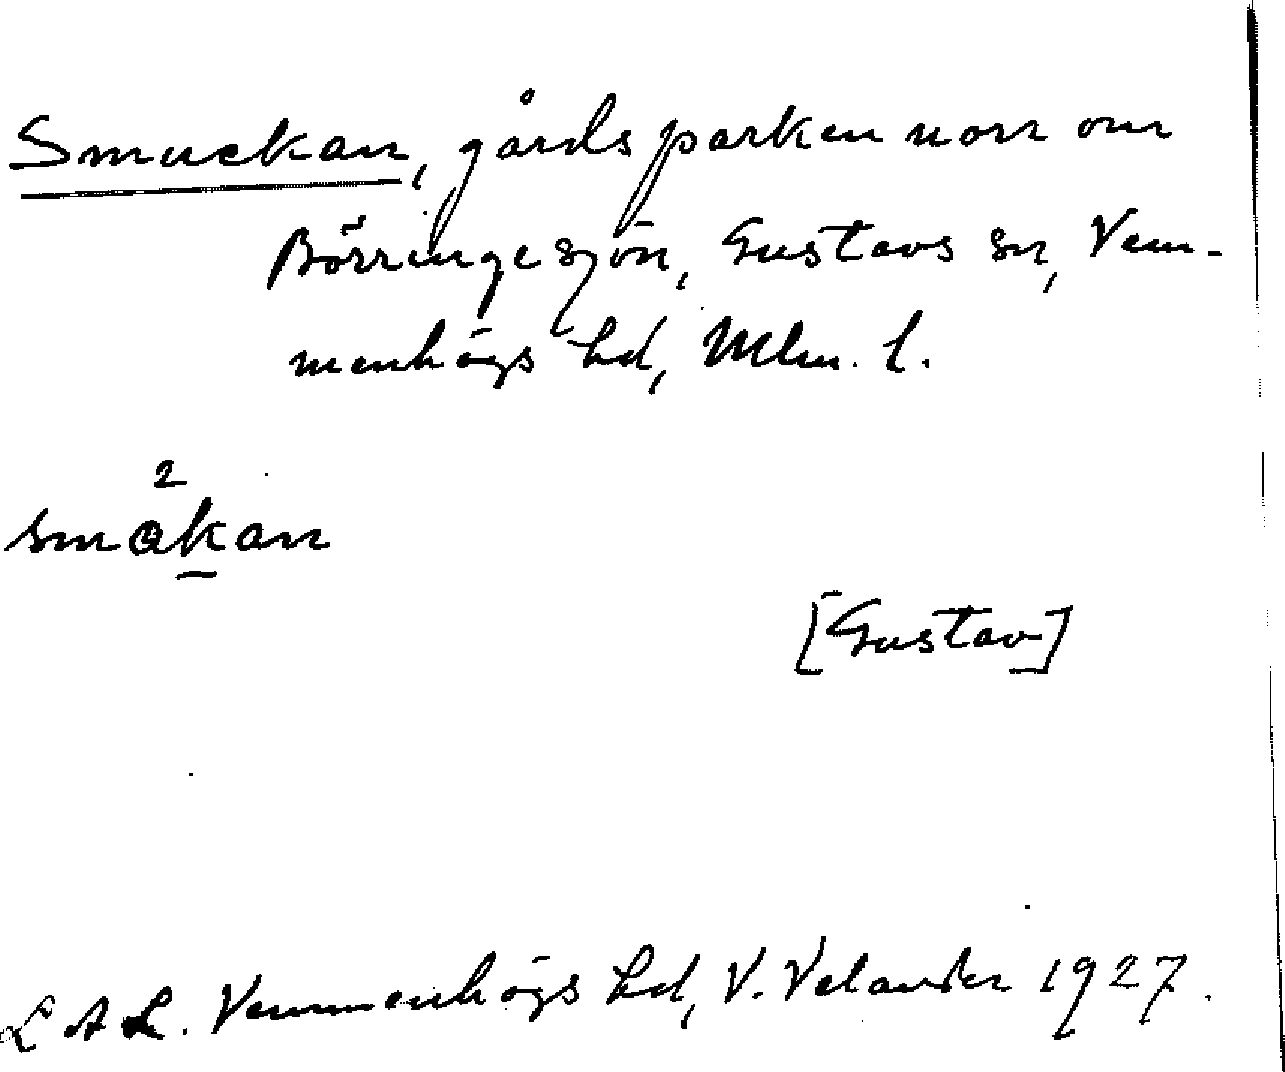 Smuckan, gårdsparken norr om
Börringesjön, Gustavs sn, Vem-
menhögs hd, Mlm. l.
2
småkan
[Gustav]
LAL. Vemmenhögs hd, V. Velander 1927.